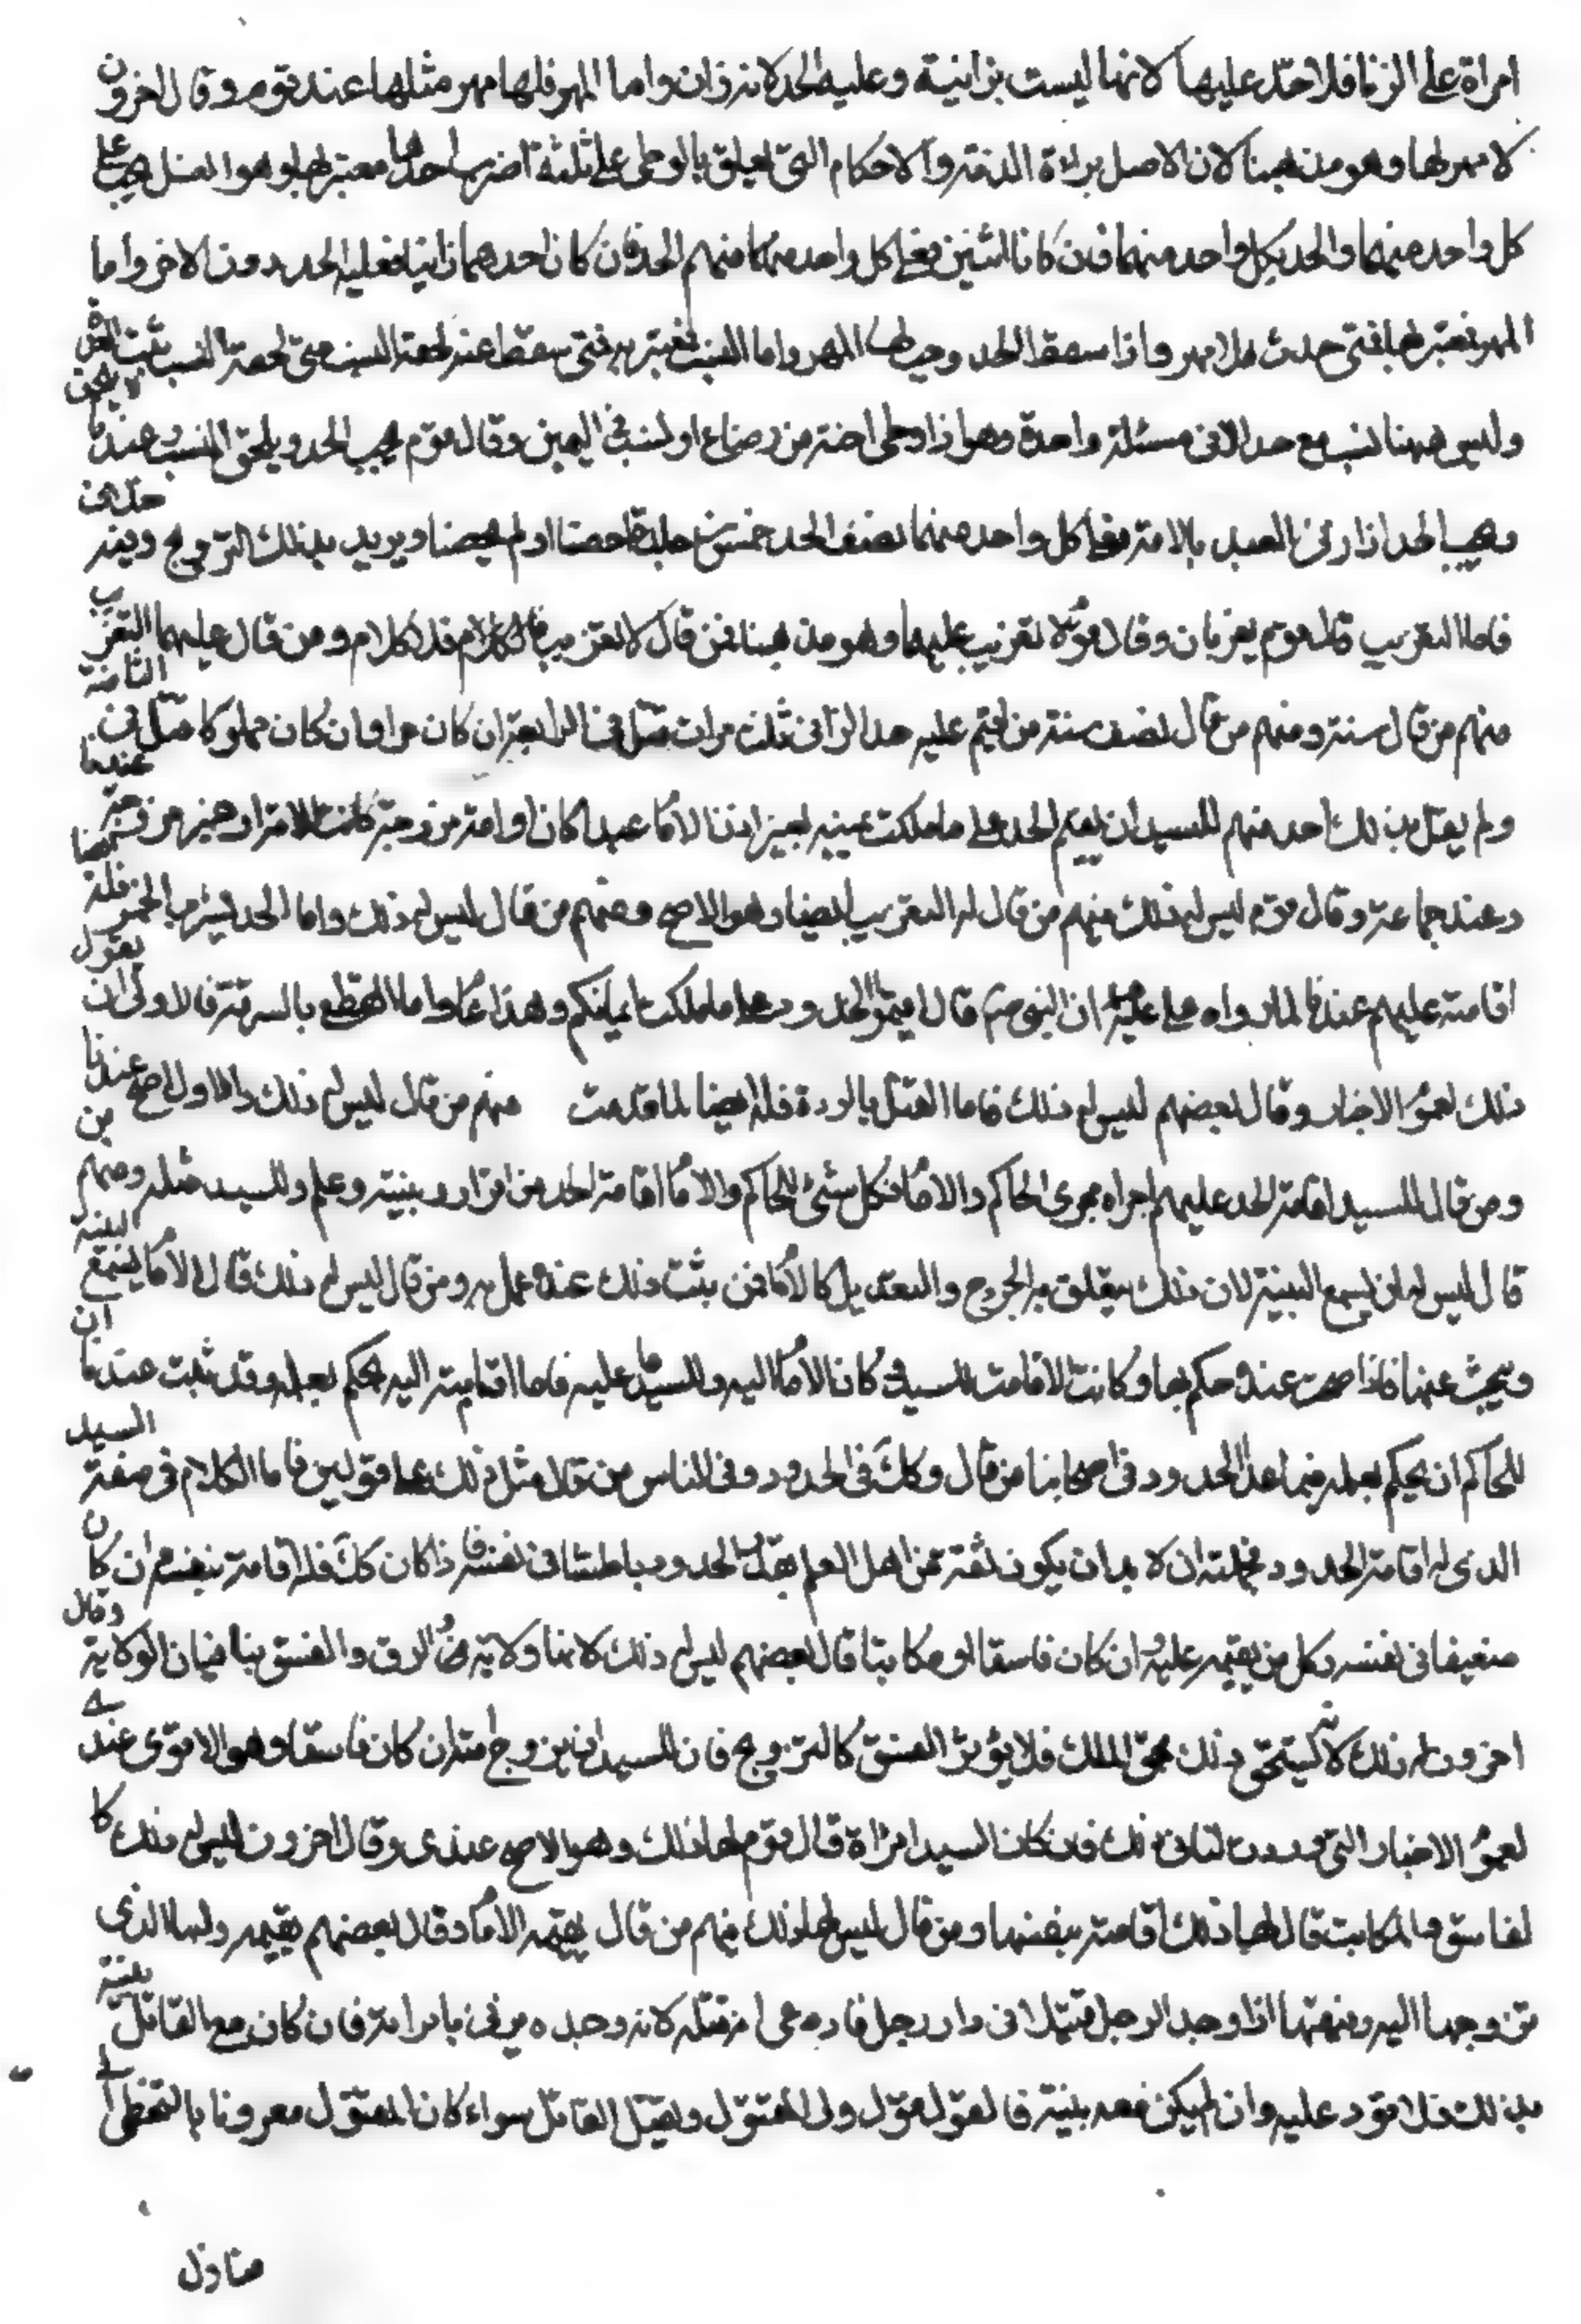 امراة على الزنا فلا حد عليها لانها ليست بزانية وعليه الحد لانه زان واما المهر فلها مهر مثلها عند قوم وقال اخرون
لا مهر لها وهو مذهبنا لان الاصل براءة الذمة والاحكام التى تعلق بالوطى على ثلثة اضرب احدها معتبر بهما وهو الغسل يجب على
كل واحد منهما والحد بكل واحد منهما فان كانا زانيين فعلى كل واحد منهما الحد فان كان احدهما زانيا فعليه الحد دون الاخر واما
المهر فمعتبر بها فمتى حدت فلا مهر واذا سقط الحد وجب لها المهر واما النسب فمعتبر به فمتى سقط عنه لحقه النسب متى لحقه النسب ثبت العدة
وليس ههنا نسب مع حد الا فى مسئلة واحدة وهو اذا وطى اخته من رضاع او نسب فى اليمين وقال قوم يجب الحد ويلحق النسب عندنا لا يلحق
ويجب الحد اذا زنى العبد بالامة فعلى كل واحد منهما نصف الحد خمسين جلدة احصنا او لم يحصنا ويريد بذلك التزويج وفيه خلاف
فاما التغريب قال قوم يغربان وقال قوم لا تغريب عليهما وهو مذهبنا فمن قال لا تغريب فلا كلام ومن قال عليهما التغريب
منهم من قال سنة ومنهم من قال نصف سنة من اقيم عليه حد الزانى ثلث مرات قتل فى الرابعة ان كان حرا وان كان مملوكا قتل فى الثامنة
ولم يقل بذلك احد منهم للسيد ان يقيم الحد على ما ملكت يمينه بغير اذن الامام عبدا كان او امة مزوجة كانت الامة او غير مزوجة عندنا
وعند جماعة وقال قوم ليس له ذلك منهم من قال له التغريب ايضا وهو الاصح ومنهم من قال ليس له ذلك واما الحد بشرب الخمر فله
اقامته عليهم عندنا لما رواه على عليه السلام ان النبى ص قال اقيموا الحدود على ما ملكت ايمانكم وهذا عام واما القطع بالسرقة فالاولى ان نقول
ذلك لعموم الاخبار وقال بعضهم ليس له ذلك فاما القتل بالردة فله ايضا لما قدمت منهم من قال ليس له ذلك والاول اصح عندنا
ومن قال للسيد اقامة الحد عليهم اجراه مجرى الحاكم والامام فكل شىء للحاكم والامام اقامة الحد من اقرار وبينة وعلم وللسيد مثله ومنهم من
قال ليس له ان يسمع البينة لان ذلك يتعلق به الجرح والتعديل كالامام فمن يثبت ذلك عنده عمل به ومن قال ليس له ذلك قال الامام يسمع البينة
ويبحث عنها فاذا صحت عنده حكم بها وكانت الاقامة للسيد فى كان الامام اليه وللسيد ما عليه فاما اقامته اليه يحكم بعلمه وقد ثبت عندنا ان
للحاكم ان يحكم بعلمه فيما عدا الحدود وفى اصحابنا من قال وكذلك فى الحدود وفى الناس من قال مثل ذلك على قولين فاما الكلام فى صفة السيد
الذى له اقامة الحدود فجملته ان لا بد ان يكون ثقة من اهل العلم بقدر الحدود باطشا فى نفسه فاذا كان كذلك فله اقامته بنفسه وان كان
ضعيفا فى نفسه وكل من يقيمه عليه وان كان فاسقا او مكاتبا قال بعضهم ليس له ذلك لانها ولاية والرق والفسق ينافيان الولاية وقال
اخرون له ذلك لانه يستحق ذلك بحق الملك فلا يؤثر الفسق كالتزويج فان للسيد ان يزوج امته ان كان فاسقا وهو الاقوى عندى
لعموم الاخبار التى وردت لنا فى ذلك فان كان السيد امراة قال قوم لها ذلك وهو الاصح عندى وقال اخرون ليس له ذلك كا
لفاسق والمكاتب قال لها ذلك اقامته بنفسها ومن قال ليس لها ذلك منهم من قال يقيمه الامام وقال بعضهم يقيمه وليها الذى
تزوجها اليه ومنهما اذا وجد الرجل قتيلا فى دار رجل فادعى انه قتله لانه وجده يزنى بامراته فان كان مع القاتل بينة
بذلك فلا قود عليه وان لم يكن معه بينة فالقول قول ولى المقتول ويقتل القاتل سواء كان المقتول معروفا بالتخطى الى
منازل